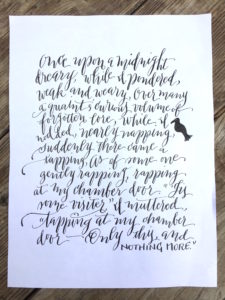 Once upon a midnight
dreary, while I pondered,
weak and weary, Over many
a quaint & curious volume of
forgotten lore, While I
nodded, nearly napping
Suddenly there came a
tapping, As of some one
gently rapping, rapping
at my chamber door "Tis
some visiter" I muttered,
"tapping at my chamber
door Only this, and
NOTHING MORE."